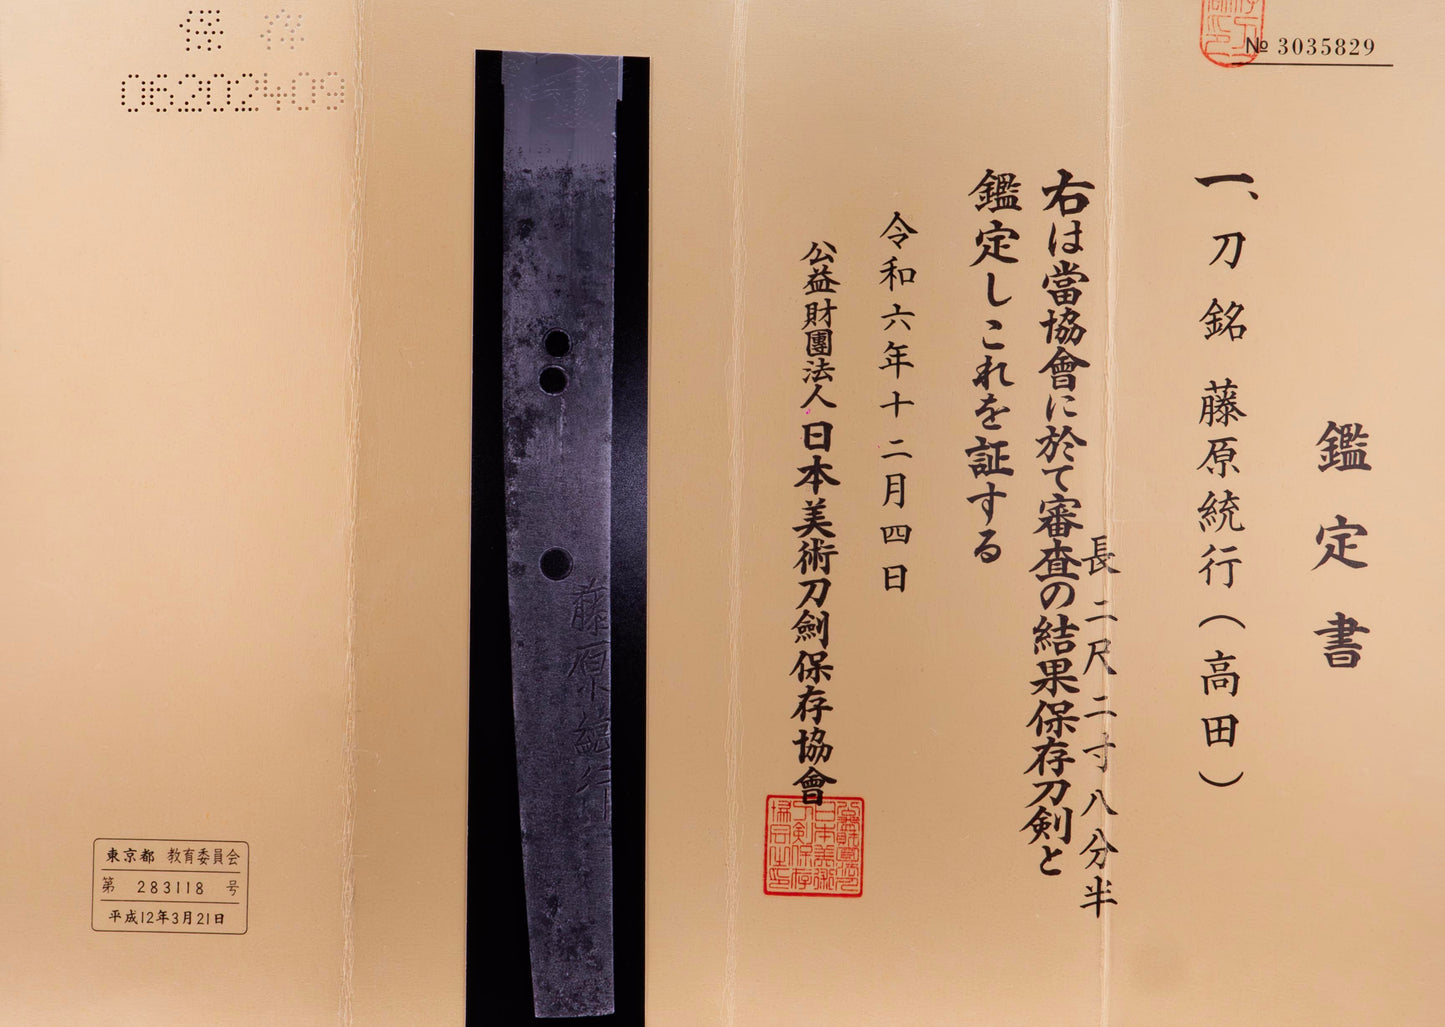 № 3035829
鑑定書
一、刀 銘 藤原統行(高田)
長 二尺二寸八分半
右は當協會に於て審査の結果保存刀剣と
鑑定しこれを証する
令和六年十二月四日
公益財團法人日本美術刀劍保存協會
藤原統行
保存
06202409
東京都 教育委員会
第 283118 号
平成12年3月21日